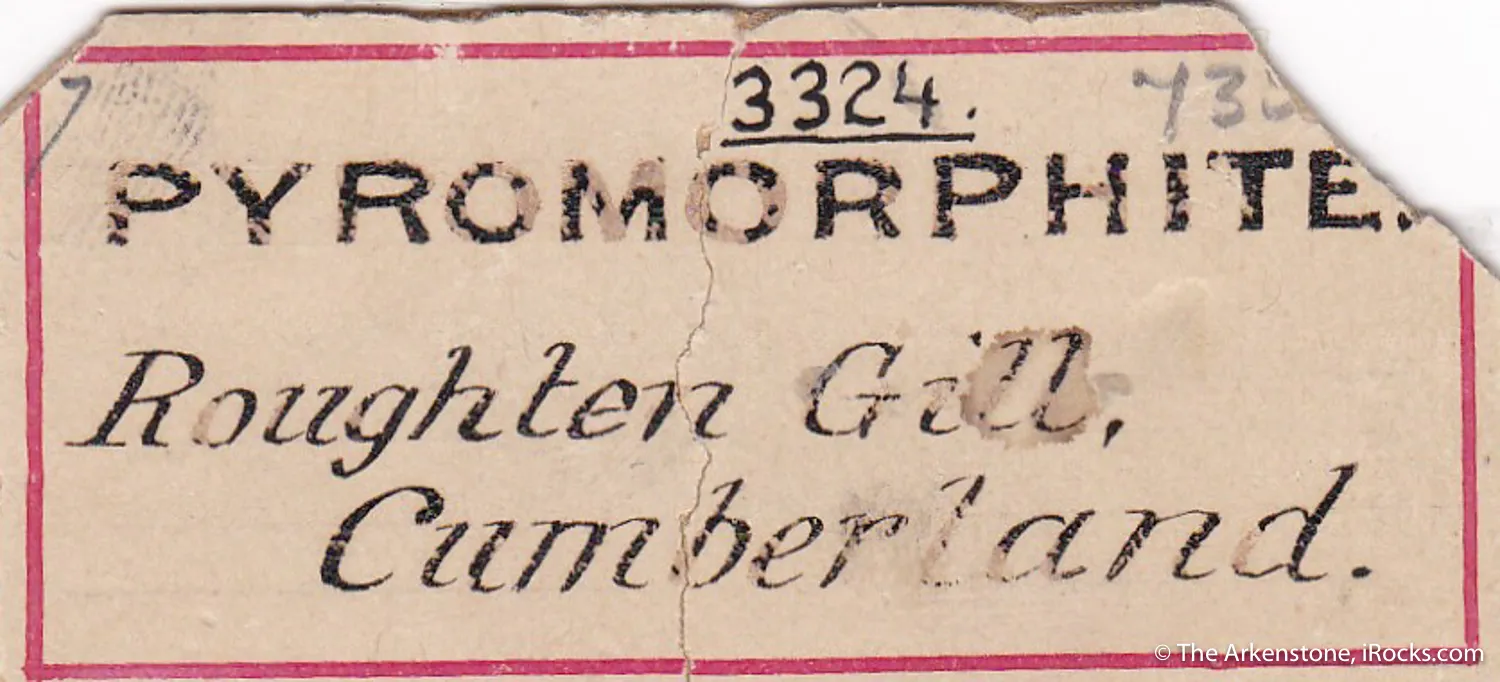 3324.
PYROMORPHITE.
Roughten Gill,
Cumberland.
© The Arkenstone, iRocks.com